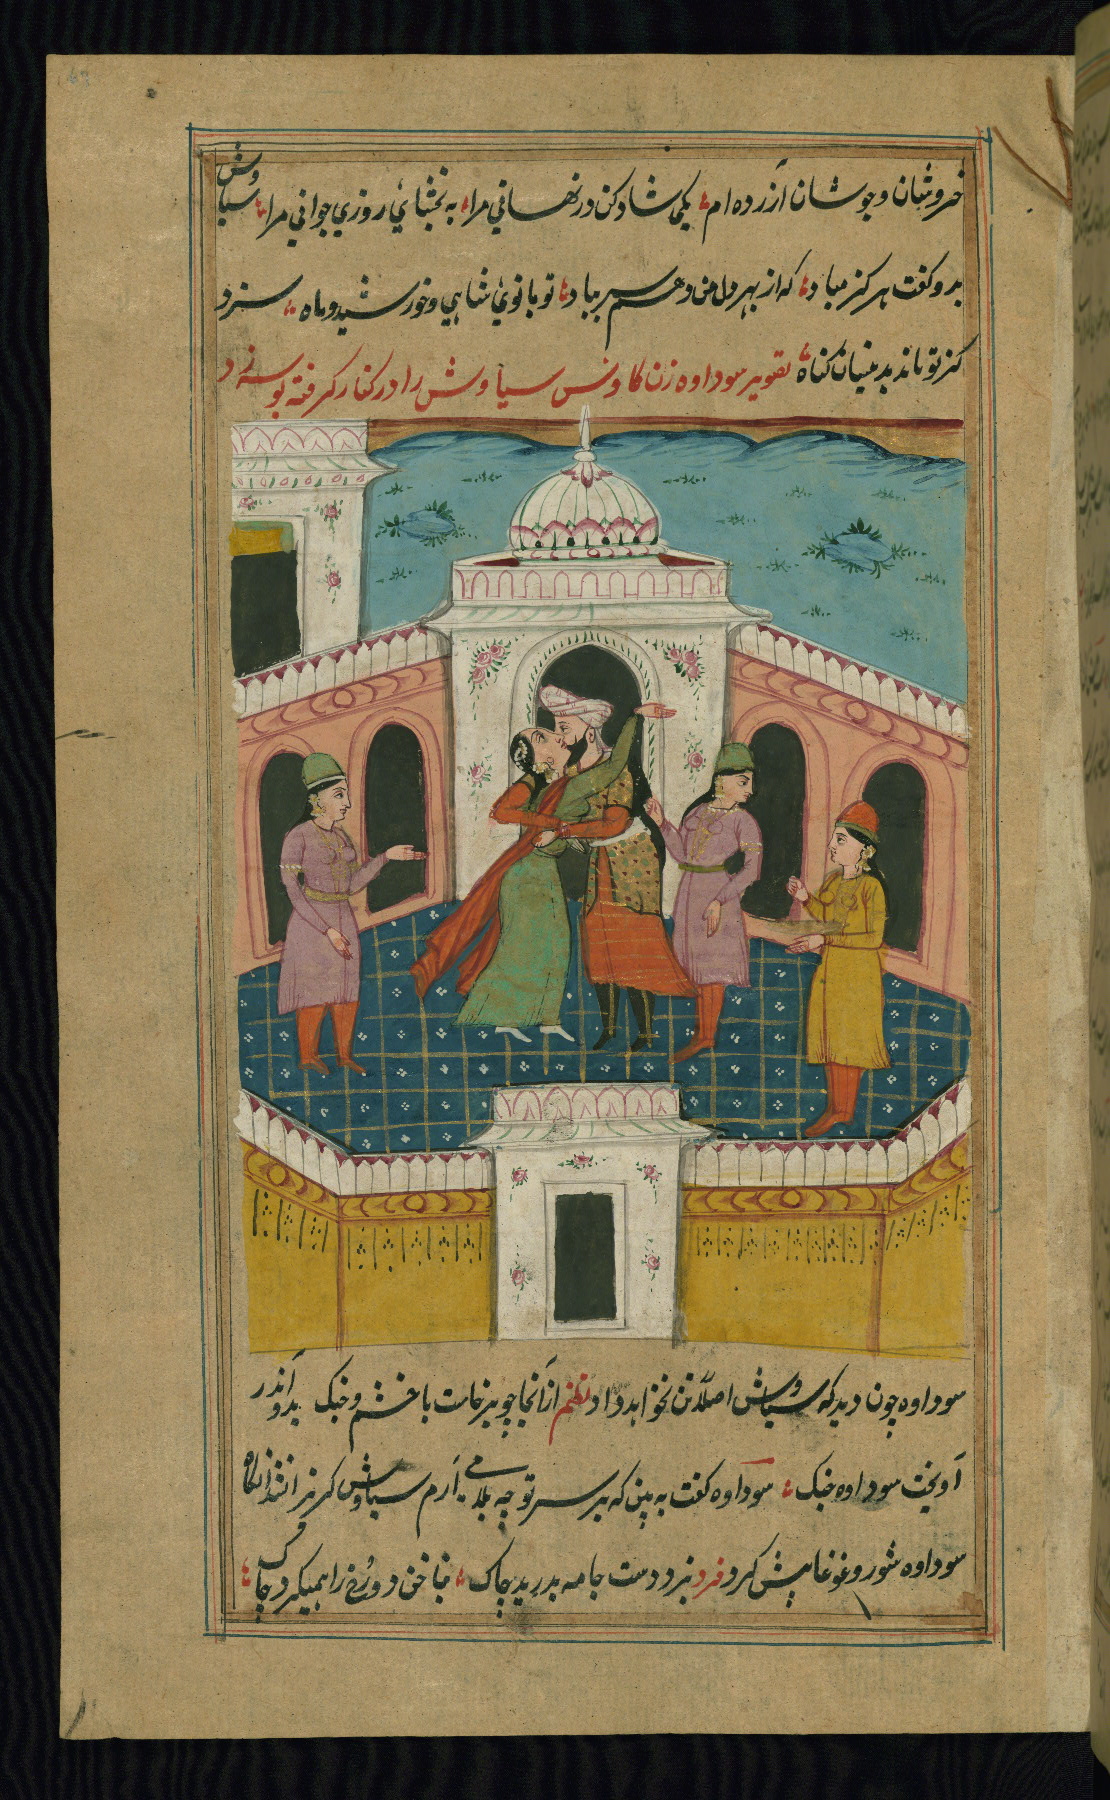 خروشان و جوشان آزرده ام؛ یکی شاد کن در نهانی مرا؛ به بخشای روزی جوانی مرا؛ سیاوش
بدو گفت هرگز مباد؛ که از بهر دل من دهم سر بباد؛ تو بانوی شاهی و خورشید و ماه؛ سزد
کز تو ناید بدینسان گناه؛ تصویر سوداوه زن کاوس سیاوش را در کنار گرفته بوسه زد
سوداوه چون دید که سیاوش اصلا تن نخواهد داد نظم از آنجا چو برخاست با خشم و جنگ بدو اندر
آویخت سوداوه جنگ؛ سوداوه گفت به بین که بر سر تو چه بلا می آرم سیاوش گریزانشد انگاه
سوداوه شور و غوغا پیش کرد فرد بزد دست جامه بدرید چاک؛ بناخن دو رخ را همیکرد چاک؛